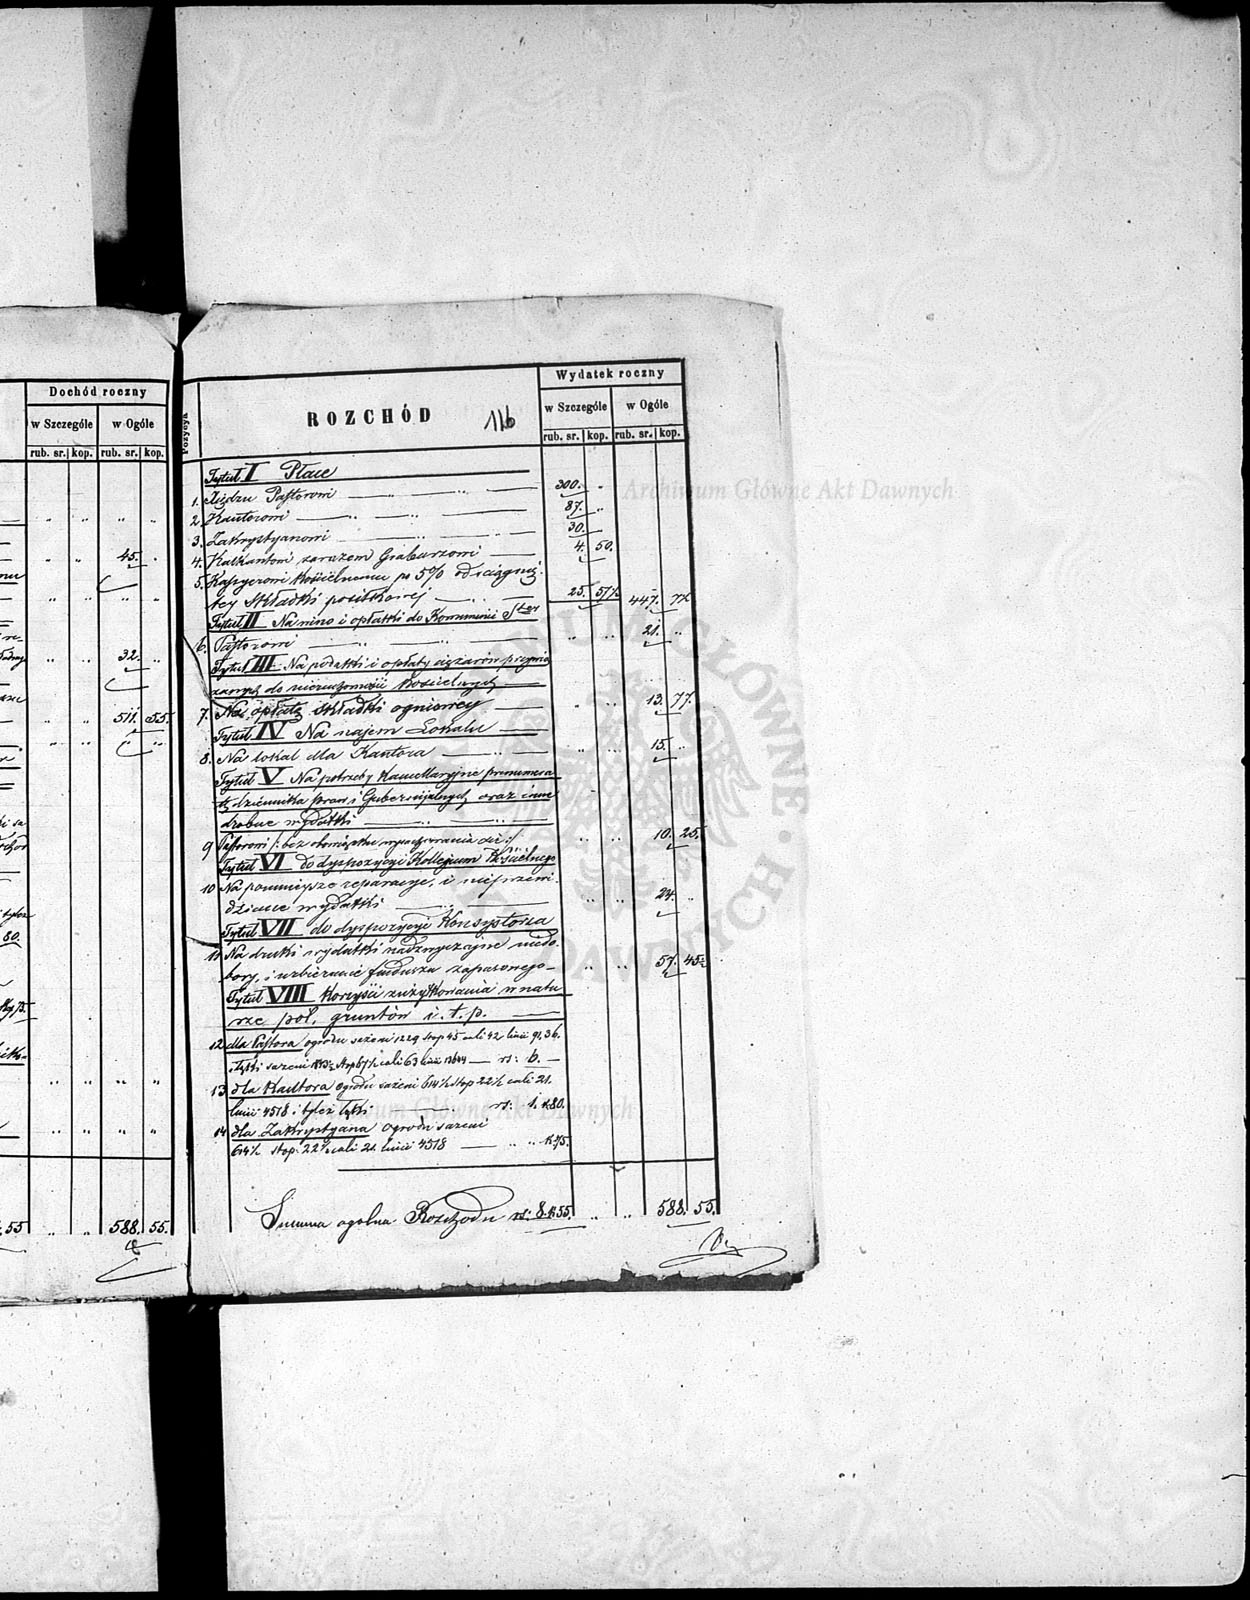 Dochód roczny
w Szczególe w Ogóle
rub. sr. kop. rub. sr. kop.
45.
32.
511. 55.
80.
55 588. 55.
Pozycya
ROZCHÓD 116
Wydatek roczny
w Szczególe w Ogóle
rub. sr. kop. rub. sr. kop.
Tytuł I Płace
1. Xiędzu Pastorowi 300. "
2. Kantorowi 87. "
3. Zakrystyanowi 30. "
4. Kalkantowi zarazem Grabarzowi 4. 50.
5. Kassyerowi kościelnemu po 5% od ściągnię-
tey składki posiłkowej 25. 57½ 447. 7½
Tytuł II Na wino i opłatki do Kommunii Stej
6. Pastorowi " " 21. "
Tytuł III Na podatki i opłaty ciężarów przywią
zanych do nieruchomości kościelnych
7. Na opłatę składki ogniowej " " 13. 77.
Tytuł IV Na najem Lokalu
8. Na lokal dla Kantora " " 15. "
Tytuł V Na potrzeby kancellaryjne prenumera
tę dziennika praw i Gubernijalnych, oraz inne
drobne wydatki
9 Pastorowi /: bez obowiązku wyrachowania się :/ " " 10. 25.
Tytuł VI do dyspozycyi Kollegium Kościelnego
10 Na pomniejsze reparacye, i nieprzewi-
dziane wydatki " " 24. "
Tytuł VII do dyspozycyi Konsystorza
11 Na druki wydatki nadzwyczajne niedo-
bory, i uzbieranie funduszu zapasowego " " 57. 45½
Tytuł VIII Korzyści z użytkowania w natu
rze pól, gruntów i. t. p.
12 dla Pastora ogrodu sążeni 1229 stop 45 cali 42 linii 91,36.
łąki sążeni stop 67½ cali 63 linii rs: 6. —
13 dla Kantora ogrodu sążeni 614½ stop 22½ cali 21.
linii 4518 i tyleż łąki rs: 1. k 80.
14 dla Zakrystyana ogrodu sążeni
614½ stop. 22½ cali 21 linii 4518 " " k 75.
Summa ogólna Rozchodu rs: 8. k 55. " " 588. 55.
Archiwum Główne Akt Dawnych
Archiwum Główne Akt Dawnych